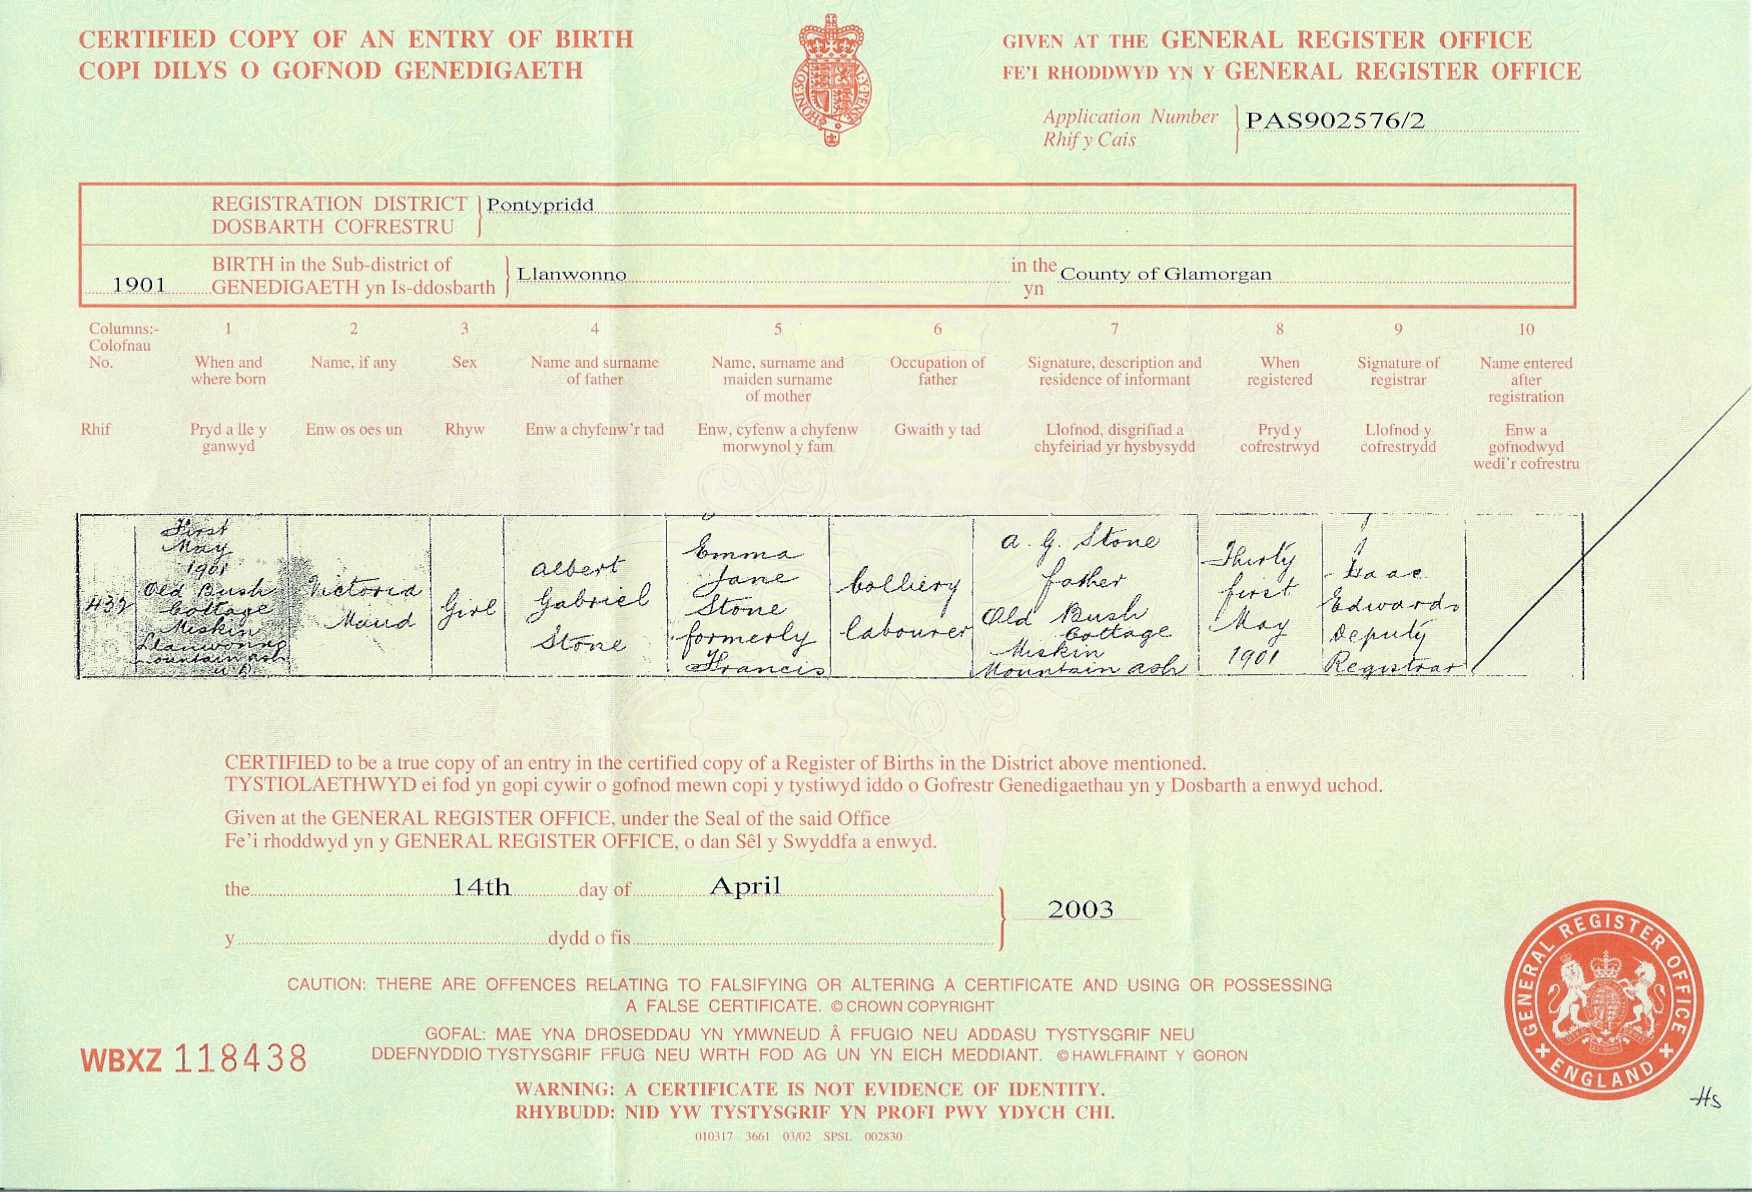 CERTIFIED COPY OF AN ENTRY OF BIRTH
COPI DILYS O GOFNOD GENEDIGAETH
GIVEN AT THE GENERAL REGISTER OFFICE
FE'I RHODDWYD YN Y GENERAL REGISTER OFFICE
Application Number
Rhif y Cais
PAS902576/2
REGISTRATION DISTRICT
DOSBARTH COFRESTRU
Pontypridd
1901
BIRTH in the Sub-district of
GENEDIGAETH yn Is-ddosbarth
Llanwonno
in the
yn
County of Glamorgan
Columns:-
Colofnau
No.
Rhif
1
When and
where born
Pryd a lle y
ganwyd
2
Name, if any
Enw os oes un
3
Sex
Rhyw
4
Name and surname
of father
Enw a chyfenw'r tad
5
Name, surname and
maiden surname
of mother
Enw, cyfenw a chyfenw
morwynol y fam
6
Occupation of
father
Gwaith y tad
7
Signature, description and
residence of informant
Llofnod, disgrifiad a
chyfeiriad yr hysbysydd
8
When
registered
Pryd y
cofrestrwyd
9
Signature of
registrar
Llofnod y
cofrestrydd
10
Name entered
after
registration
Enw a
gofnodwyd
wedi'r cofrestru
432
First
May
1901
Old Bush
Cottage
Miskin
Llanwonno
Mountain ash
Victoria
Maud
Girl
Albert
Gabriel
Stone
Emma
Jane
Stone
formerly
Francis
Colliery
labourer
A. G. Stone
father
Old Bush
Cottage
Miskin
Mountain ash
Thirty
first
May
1901
Isaac
Edwards
Deputy
Registrar
CERTIFIED to be a true copy of an entry in the certified copy of a Register of Births in the District above mentioned.
TYSTIOLAETHWYD ei fod yn gopi cywir o gofnod mewn copi y tystiwyd iddo o Gofrestr Genedigaethau yn y Dosbarth a enwyd uchod.
Given at the GENERAL REGISTER OFFICE, under the Seal of the said Office
Fe'i rhoddwyd yn y GENERAL REGISTER OFFICE, o dan Sêl y Swyddfa a enwyd.
the 14th day of April
2003
y dydd o fis
CAUTION: THERE ARE OFFENCES RELATING TO FALSIFYING OR ALTERING A CERTIFICATE AND USING OR POSSESSING
A FALSE CERTIFICATE. © CROWN COPYRIGHT
GOFAL: MAE YNA DROSEDDAU YN YMWNEUD Â FFUGIO NEU ADDASU TYSTYSGRIF NEU
DDEFNYDDIO TYSTYSGRIF FFUG NEU WRTH FOD AG UN YN EICH MEDDIANT. © HAWLFRAINT Y GORON
WBXZ 118438
WARNING: A CERTIFICATE IS NOT EVIDENCE OF IDENTITY.
RHYBUDD: NID YW TYSTYSGRIF YN PROFI PWY YDYCH CHI.
010317 3661 03/02 SPSL 002830
GENERAL REGISTER OFFICE
ENGLAND
HS